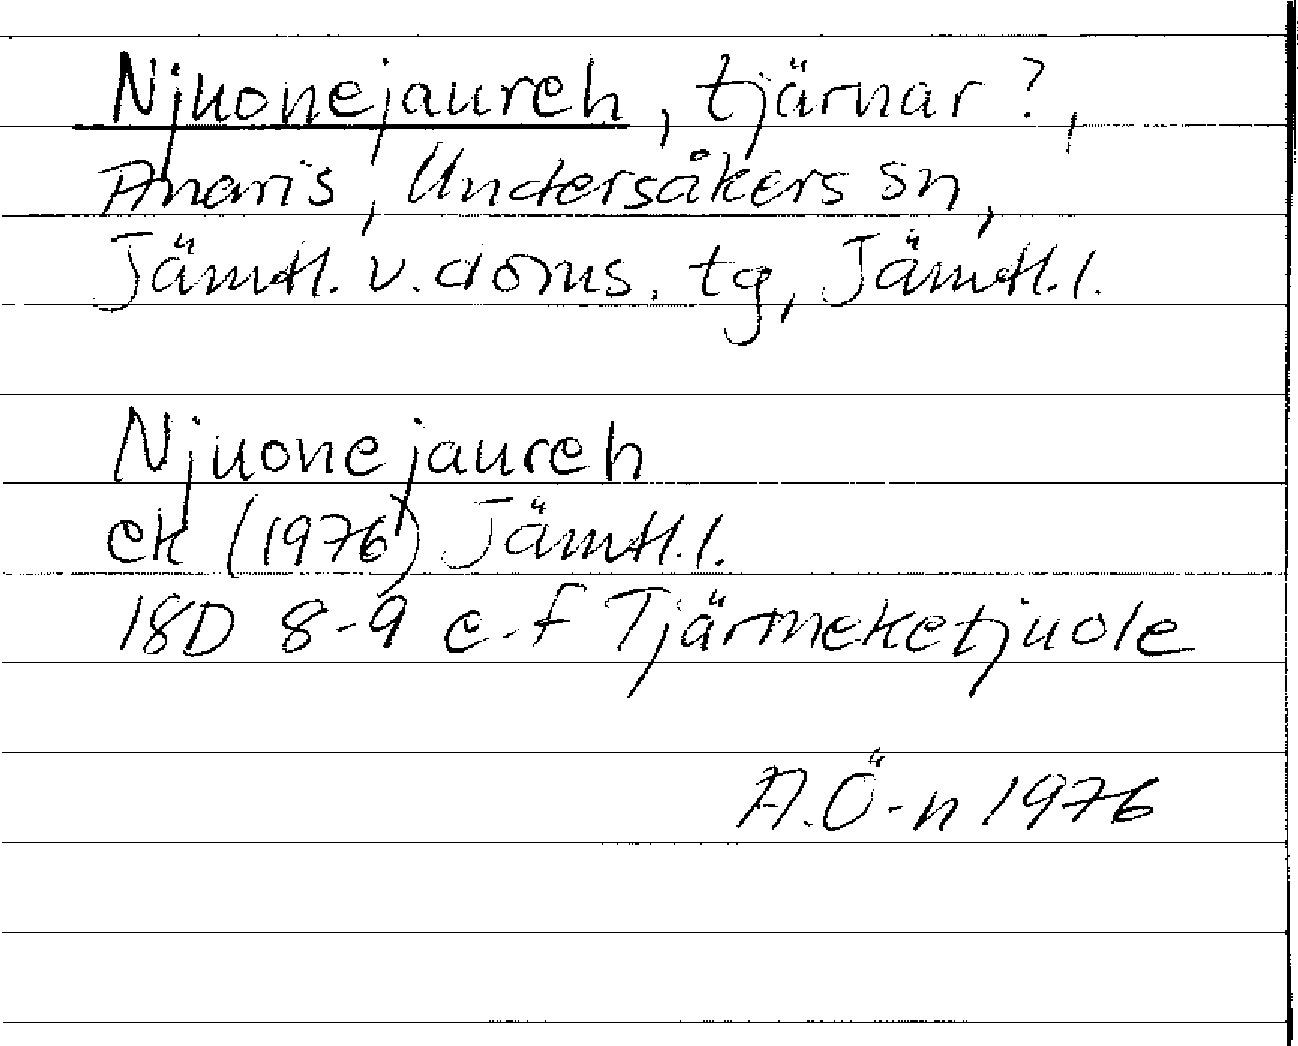 Njuonejaureh, tjärnar?,
Anaris, Undersåkers sn,
Jämtl. v. doms. tg, Jämtl. l.
Njuonejaureh
ek (1976) Jämtl. l.
18D 8-9 e-f Tjärmeketjuole
A. Ö-n 1976